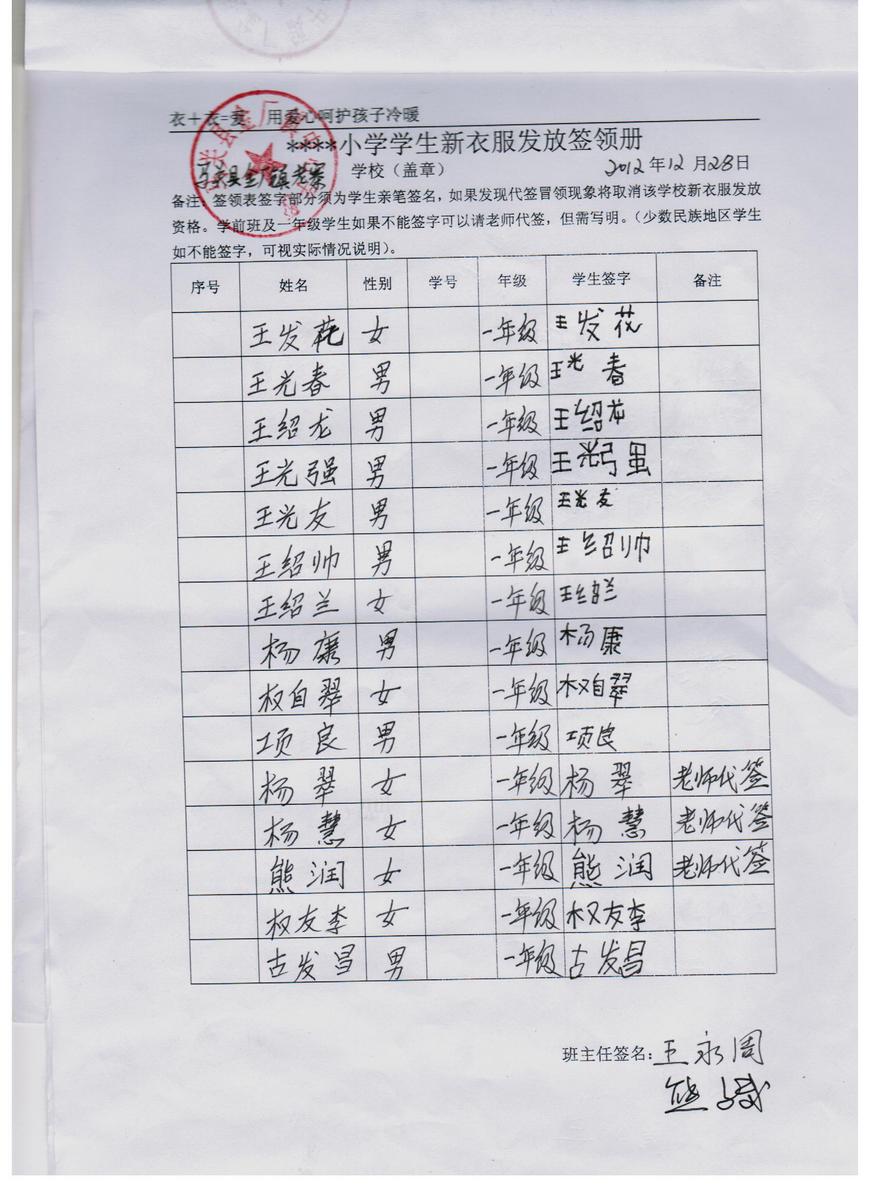 衣+衣=爱 用爱心呵护孩子冷暖
****小学学生新衣服发放签领册
马关县金厂镇老寨 学校（盖章） 2012年12月28日
备注：签领表签字部分须为学生亲笔签名，如果发现代签冒领现象将取消该学校新衣服发放
资格。学前班及一年级学生如果不能签字可以请老师代签，但需写明。（少数民族地区学生
如不能签字，可视实际情况说明）。
序号 姓名 性别 学号 年级 学生签字 备注
王发花 女 一年级 王发花
王光春 男 一年级 王光春
王绍龙 男 一年级 王绍龙
王光强 男 一年级 王光强
王光友 男 一年级 王光友
王绍帅 男 一年级 王绍帅
王绍兰 女 一年级 王绍兰
杨康 男 一年级 杨康
权自翠 女 一年级 权自翠
项良 男 一年级 项良
杨翠 女 一年级 杨翠 老师代签
杨慧 女 一年级 杨慧 老师代签
熊润 女 一年级 熊润 老师代签
权友李 女 一年级 权友李
古发昌 男 一年级 古发昌
班主任签名：王永周